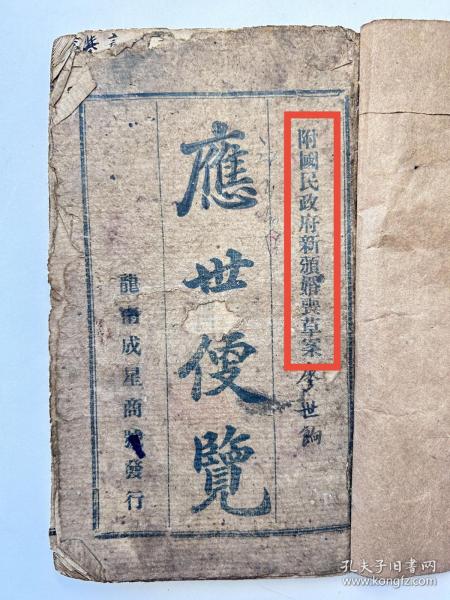 附國民政府新頒婚喪草案
廖世餉
應世便覽
龍南成星商號發行
孔夫子旧书网
www.kongfz.com